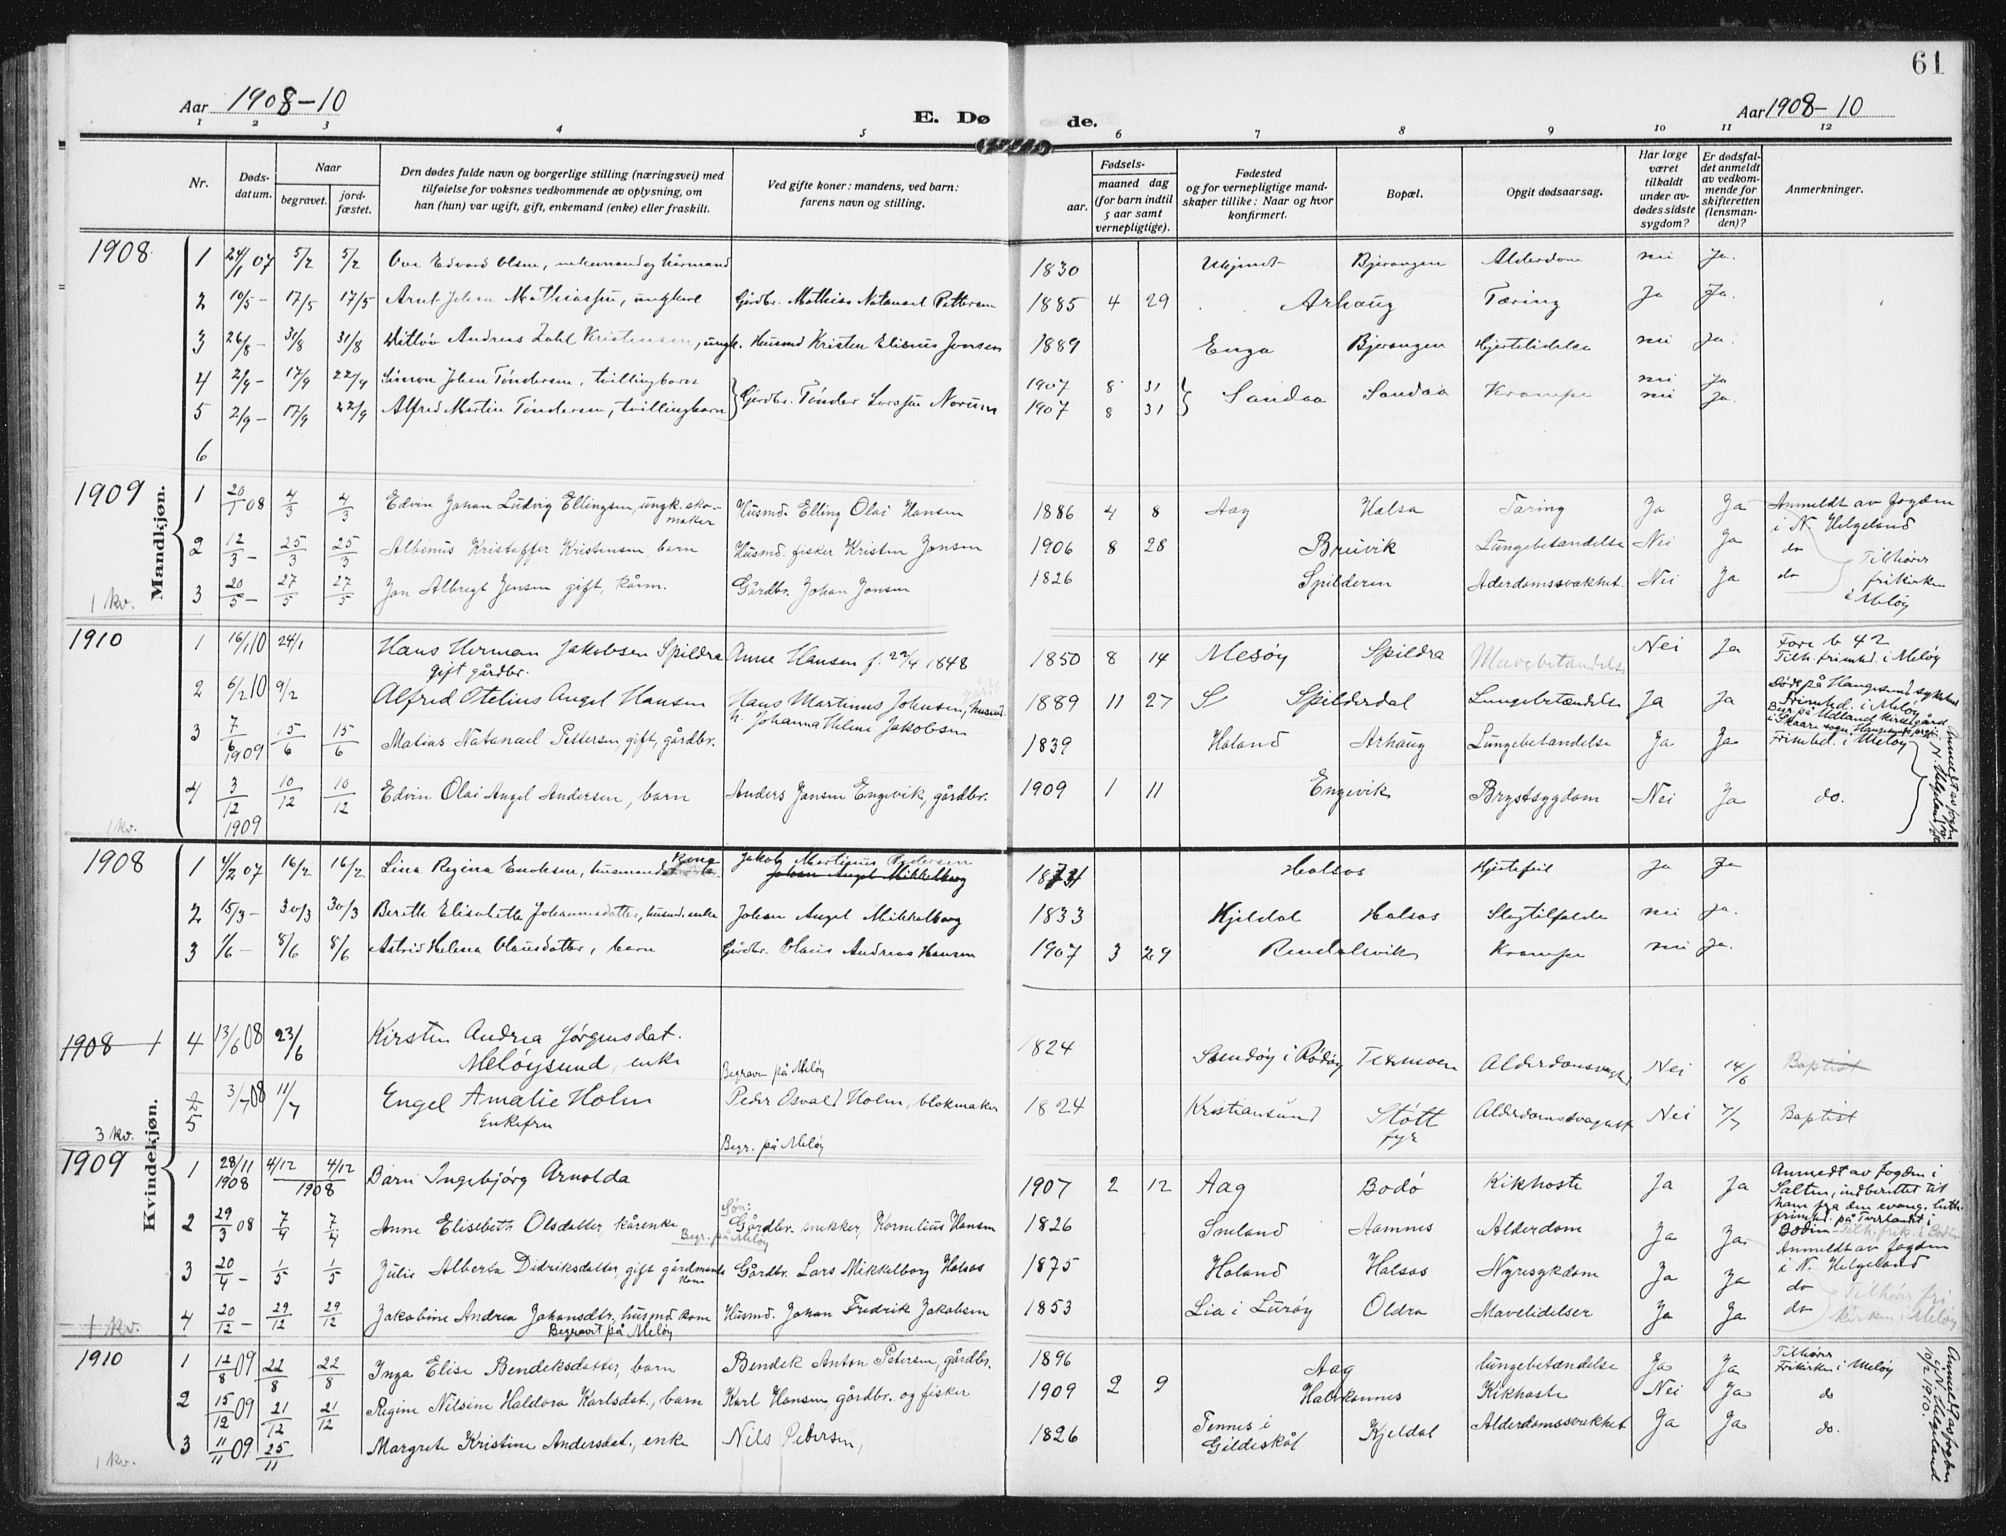 61
Aar 1908-10
E. Dø de.
Aar 1908-10
1 2 3 4 5 6 7 8 9 10 11 12
Nr.
Døds-
datum.
Naar
begravet.
jord-
fæstet.
Den dødes fulde navn og borgerlige stilling (næringsvei) med
tilføielse for voksnes vedkommende av oplysning, om
han (hun) var ugift, gift, enkemand (enke) eller fraskilt.
Ved gifte koner: mandens, ved barn:
farens navn og stilling.
Fødsels-
aar.
maaned dag
(for barn indtil
5 aar samt
vernepligtige).
Fødested
og for vernepligtige mand-
skaper tillike: Naar og hvor
konfirmert.
Bopæl.
Opgit dødsaarsag.
Har læge
været
tilkaldt
under av-
dødes sidste
sygdom?
Er dødsfal-
det anmeldt
av vedkom-
mende for
skifteretten
(lensman-
den)?
Anmerkninger.
Mandkjøn.
1908
1 24/1 07 5/2 5/2 Ove Edvard Olsen, enkemand og kårmand 1830 Ukjendt Bjerangen Alderdom nei Ja.
2 10/5 - 17/5 17/5 Arnt Johan Mathiassen, ungkarl Gårdbr. Mathias Natanael Pettersen 1885 4 29 Arhaug Tæring Ja Ja.
3 26/8 - 31/8 31/8 Ditløv Andreas Zahl Kristensen, ungk. Husmd Kristen Elisæus Jensen 1889 Enga Bjerangen Hjertelidelse nei Ja.
4 2/9 - 17/9 22/9 Simon Johan Tøndersen, tvillingbarn Gårdbr. Tønder Larssen Norum 1907 8 31 Sandaa Sandaa Krampe nei Ja
5 2/9 - 17/9 22/9 Alfred Martin Tøndersen, tvillingbarn 1907 8 31 nei Ja.
6
1909
1 20/1 08 4/3 4/3 Edvin Johan Ludvig Ellingsen, ungk. sko-
maker Husmd. Elling Olai Hansen 1886 4 8 Aag Halsa Tæring Ja Ja Anmeldt av fogden
i N. Helgeland
2 12/3 - 25/3 25/3 Albinus Kristoffer Kristensen barn Husmd. fisker Kristen Jensen 1906 8 28 Bruvik Lungebetændelse Nei Ja do Tilhører
frikirken
i Meløy
3 20/5 - 27/5 27/5 Jon Albregt Jensen gift, kårm. Gårdbr. Johan Jonsen 1826 Spilderen Aderdomssvakhet Nei Ja do
1 kv.
1910
1 16/1 10 24/1 Hans Herman Jakobsen Spildra
gift gårdbr. Anne Hansen f. 22/4 1848 1850 8 14 Mesøy Spildra Mavebetændelse Nei Ja Fore b 42
Tilh. frimhd. i Meløy
2 6/2 10 9/2 Alfred Otelius Angel Hansen Hans Martinus Johnsen, husmd.
h. Johanna Helene Jakobsen 1889 11 27 S Spilderdal Lungebetændelse Ja Ja Døde på Haugesund sykehus
Frimhd. i Meløy
Begr. på Udland kirkegård
i Skaare sogn Haugesunds prgj.
3 7/6 1909 15/6 15/6 Matias Natanael Pettersen gift, gårdbr. 1839 Haland Arhaug Lungebetændelse Ja Ja Frimhd. i Meløy
4 3/12 1909 10/12 10/12 Edvin Olai Angel Andersen, barn Anders Jansen Engevik, gårdbr. 1909 1 11 Engevik Brystsygdom Nei Ja do.
1 kv.
Kvindekjøn.
1908
1 4/2 07 16/2 16/2 Lina Regina Enoksen, husmands kona Jakob Martinus Pedersen
Johan Angel Mikkelborg 1874 Halsos Hjertefeil ja Ja
2 15/3 - 30/3 30/3 Berethe Elisabethe Johannesdatter, husmd. enke Johan Angel Mikkelborg 1833 Kjeldal Halsos Slagtilfælde nei Ja.
3 1/6 - 8/6 8/6 Astrid Helena Olausdatter, barn Gårdbr. Olaus Andreas Hansen 1907 3 29 Rendalsvik Krampe nei Ja.
1908 1 4 13/6 08 23/6 Kirsten Andrea Jørgensdat.
Meløysund, enke Begraven på Meløy 1824 Sandøy i Rødøy Teksmoen Alderdomssvaghet Nei 14/6 Baptist
2 5 3/7 08 11/7 Engel Amalie Holm
Enkefru Peder Osvald Holm, blokmaker
Begr. på Meløy 1824 Kristiansund Støtt
fyr Alderdomssvaghet Nei 7/7 Baptist
3 kv.
1909
1 28/11 1908 4/12 4/12 1908 Barn Ingebjørg Arnolda 1907 2 12 Aag Bodø Kikhoste Ja Ja Anmeldt av fogden i
Salten, indberettet til
ham fra den evang. luth.
frimhd. på Tverlandet i
Bodin Tilh. frik. i Bodin
2 29/3 08 7/4 7/4 Anne Elisebeth Olsdatter, kårenke
Begr. på Meløy Søn:
Gårdbr. snekker, Kornelius Hansen 1826 Smeland Aamnes Alderdom Ja Ja
3 20/4 - 1/5 1/5 Julie Alberta Didriksdatter gift gårdmands
kone Gårdbr. Lars Mikkelborg Halsos 1875 Haland Halsos Nyresykdom Ja Ja Anmeldt av fogden
i N. Helgeland
do
4 20/12 - 29/12 29/12 Jakobine Andrea Johansdtr. husmd. kone
Begravet på Meløy Husmd. Johan Fredrik Jakobsen 1853 Lia i Lurøy Oldra Mavelidelser Ja Ja do Tilhører fri
kirken i Meløy
1 kv.
1910
1 12/8 09 22/8 22/8 Inga Elise Bendeksdatter, barn Bendek Anton Petersen, gårdbr. 1896 Aag lungebetændelse Ja Ja Tilhører
Frikirken i Meløy
2 15/12 09 21/12 21/12 Regine Nilsine Haldora Karlsdat., barn Karl Hansen gårdbr. og fisker 1909 2 9 Halvkannes Kikhoste Nei Ja do
3 11/11 09 25/11 Margrete Kristine Andersdat., enke Nils Pedersen, 1826 Tennes i
Gildeskål Kjeldal Alderdomssvakhet Ja Ja do.
1 kv.
Anmeldt av fogden
i N. Helgeland
10/2 1910.